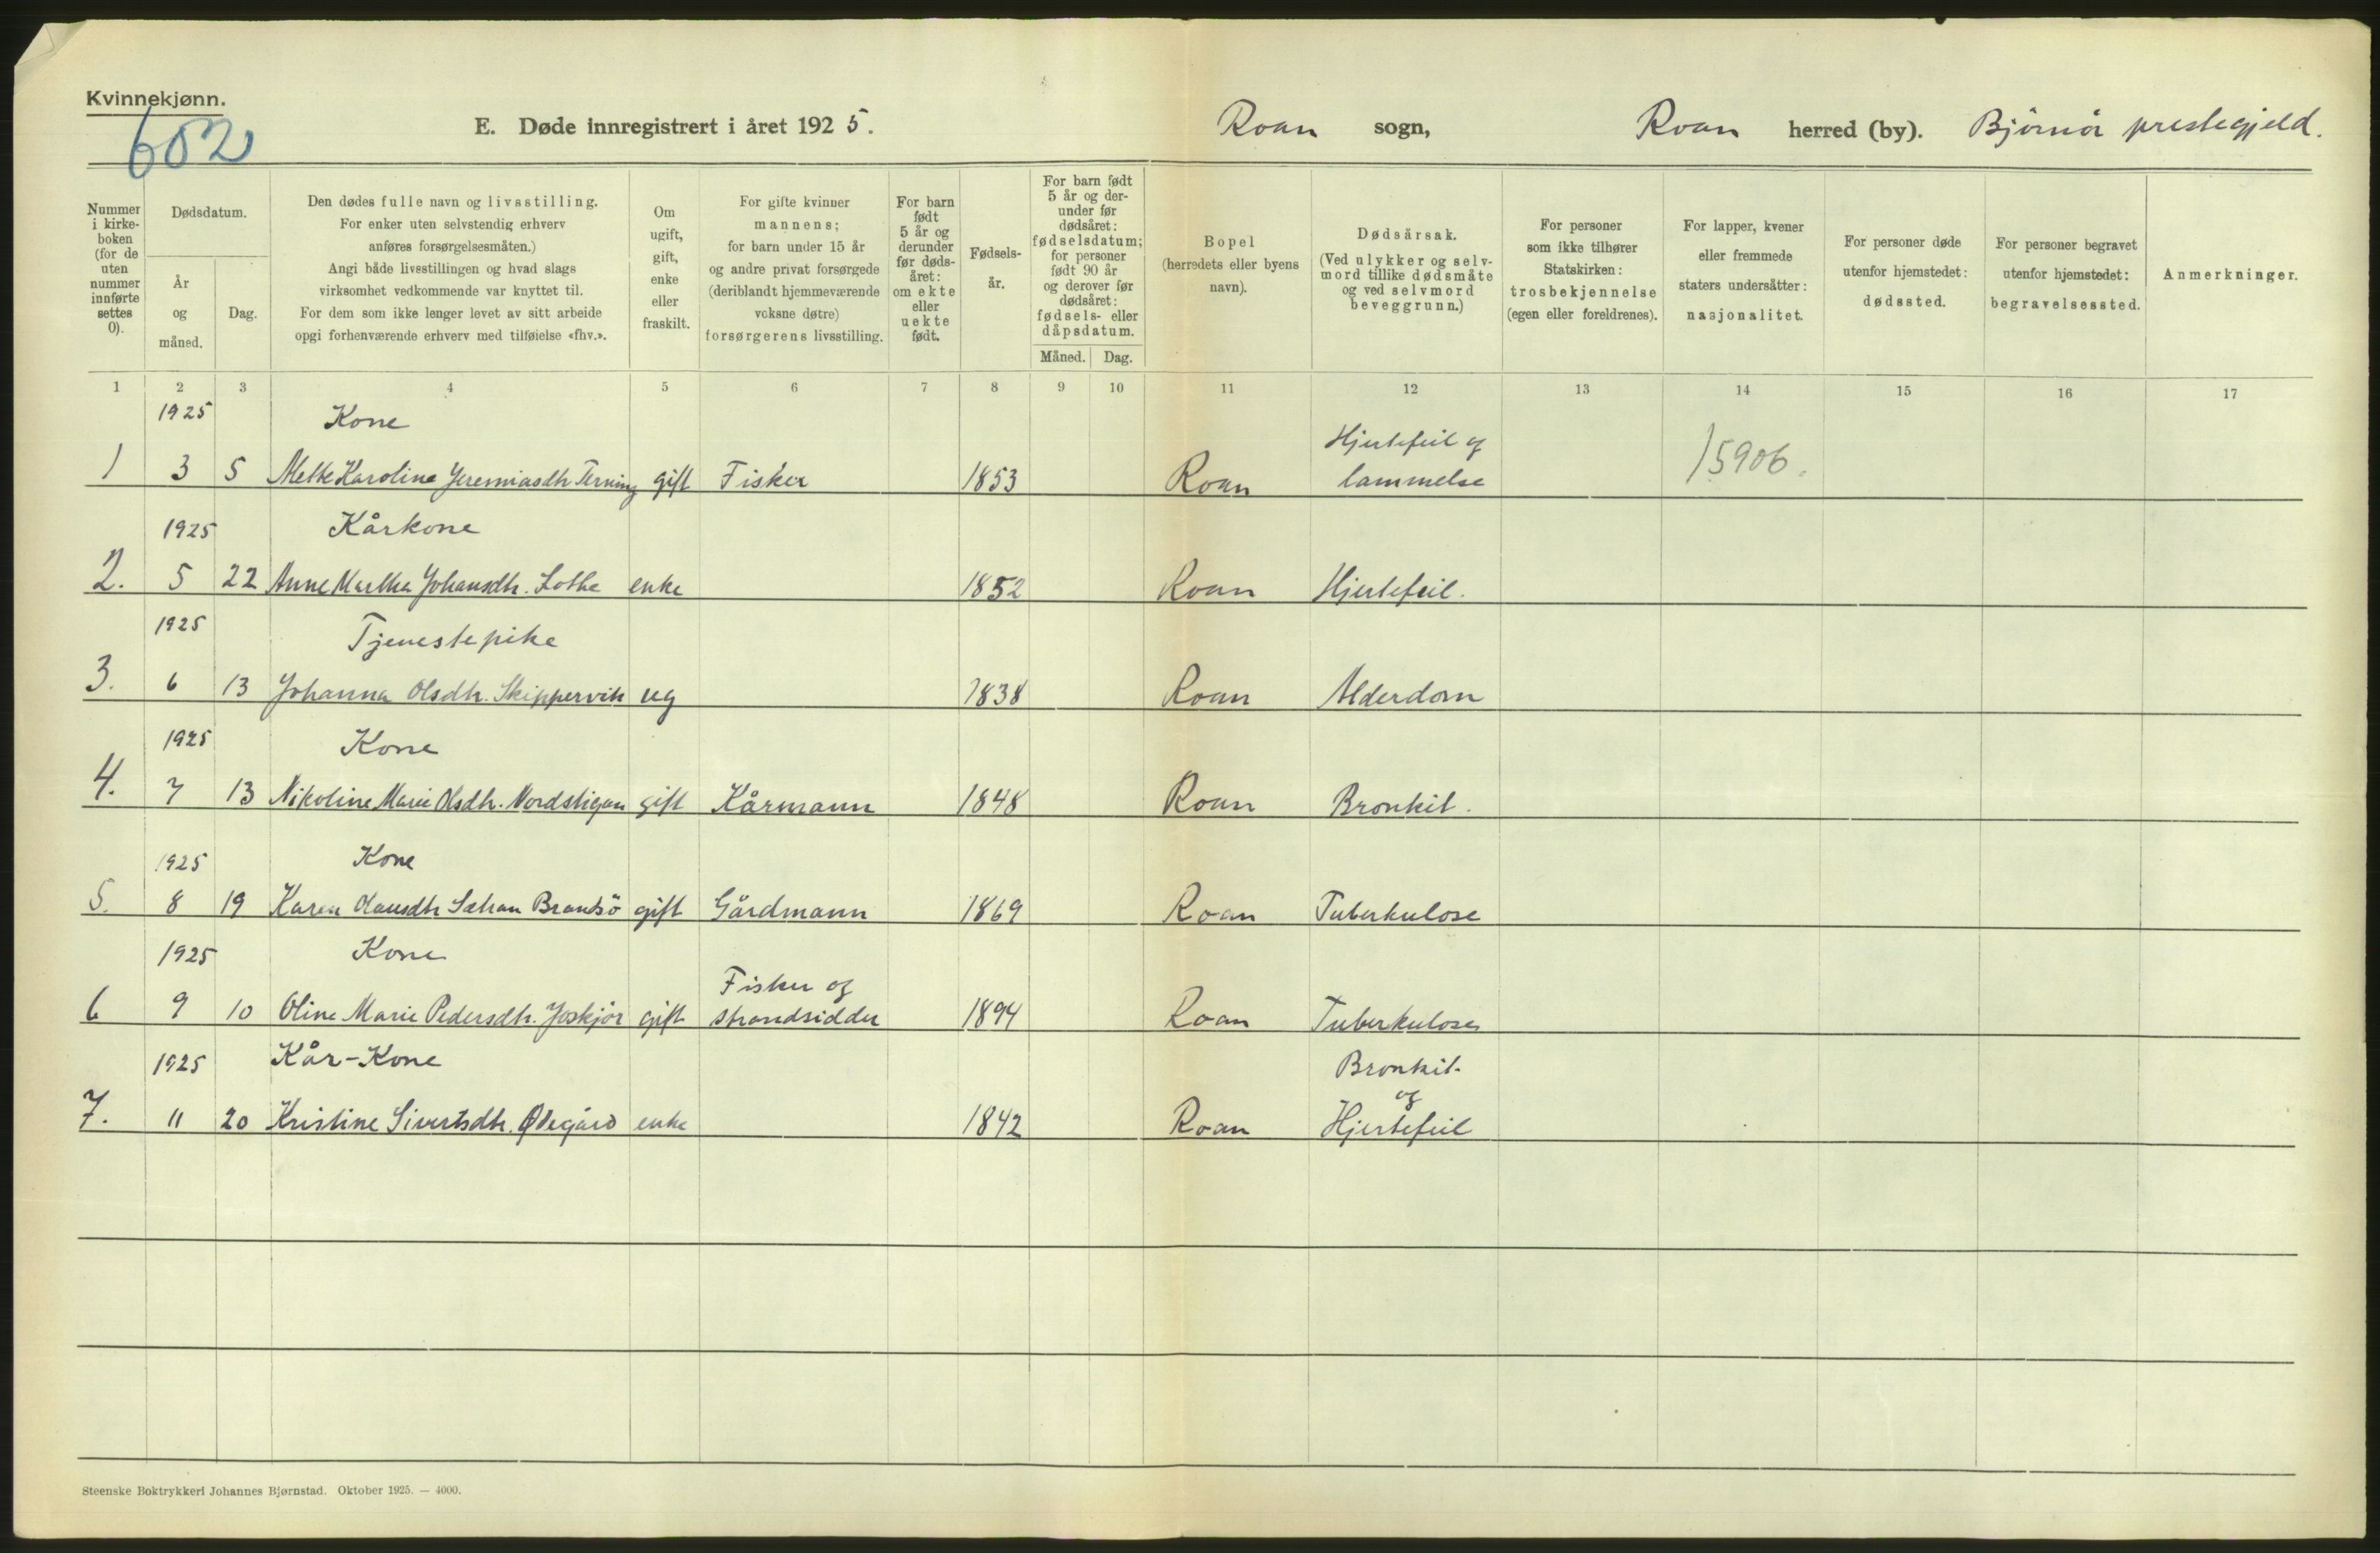 Kvinnekjønn.
602
E. Døde innregistrert i året 1925.
Roan sogn,
Roan herred (by). Bjørnør prestegjeld.
Nummer i kirke-boken (for de uten nummer innførte settes 0).
Dødsdatum.
År og måned.
Dag.
Den dødes fulle navn og livsstilling.
For enker uten selvstendig erhverv
anføres forsørgelsesmåten.)
Angi både livsstillingen og hvad slags
virksomhet vedkommende var knyttet til.
For dem som ikke lenger levet av sitt arbeide
opgi forhenværende erhverv med tilføielse «fhv.».
Om ugift, gift, enke eller fraskilt.
For gifte kvinner
mannens;
for barn under 15 år
og andre privat forsørgede
(deriblandt hjemmeværende
voksne døtre)
forsørgerens livsstilling.
For barn født 5 år og derunder før døds-året: om ekte eller uekte født.
Fødsels-år.
For barn født 5 år og der-under før dødsåret: fødselsdatum; for personer født 90 år og derover før dødsåret: fødsels- eller dåpsdatum.
Måned. Dag.
Bopel
(herredets eller byens
navn).
Dødsårsak.
(Ved ulykker og selv-
mord tillike dødsmåte
og ved selvmord
beveggrunn.)
For personer
som ikke tilhører
Statskirken:
trosbekjennelse
(egen eller foreldrenes).
For lapper, kvener
eller fremmede
staters undersåtter:
nasjonalitet.
For personer døde
utenfor hjemstedet:
dødssted.
For personer begravet
utenfor hjemstedet:
begravelsessted.
Anmerkninger.
1 2 3 4 5 6 7 8 9 10 11 12 13 14 15 16 17
1925 Kone Hjertefeil og
1 3 5 Mette Karoline Jeremiasdtr Terning gift Fisker 1853 Roan lammelse 15906.
1925 Kårkone
2. 5 22 Anne Martha Johansdtr. Lothe enke 1852 Roan Hjertefeil.
1925 Tjenestepike
3. 6 13 Johanna Olsdtr. Skippervik ug 1838 Roan Alderdom
1925 Kone
4. 7 13 Nikoline Marie Olsdtr. Nordstigan gift Kårmann 1848 Roan Bronkit.
1925 Kone
5. 8 19 Karen Olausdtr Sætran Brandsö gift Gårdmann 1869 Roan Tuberkulose
1925 Kone Fisker og
6 9 10 Oline Marie Pedersdtr. Joskjör gift strandsidder 1894 Roan Tuberkulose
1925 Kår-Kone Bronkit-
og
7. 11 20 Kristine Sivertsdtr. Ødegård enke 1842 Roan Hjertefeil
Steenske Boktrykkeri Johannes Bjørnstad. Oktober 1925. — 4000.